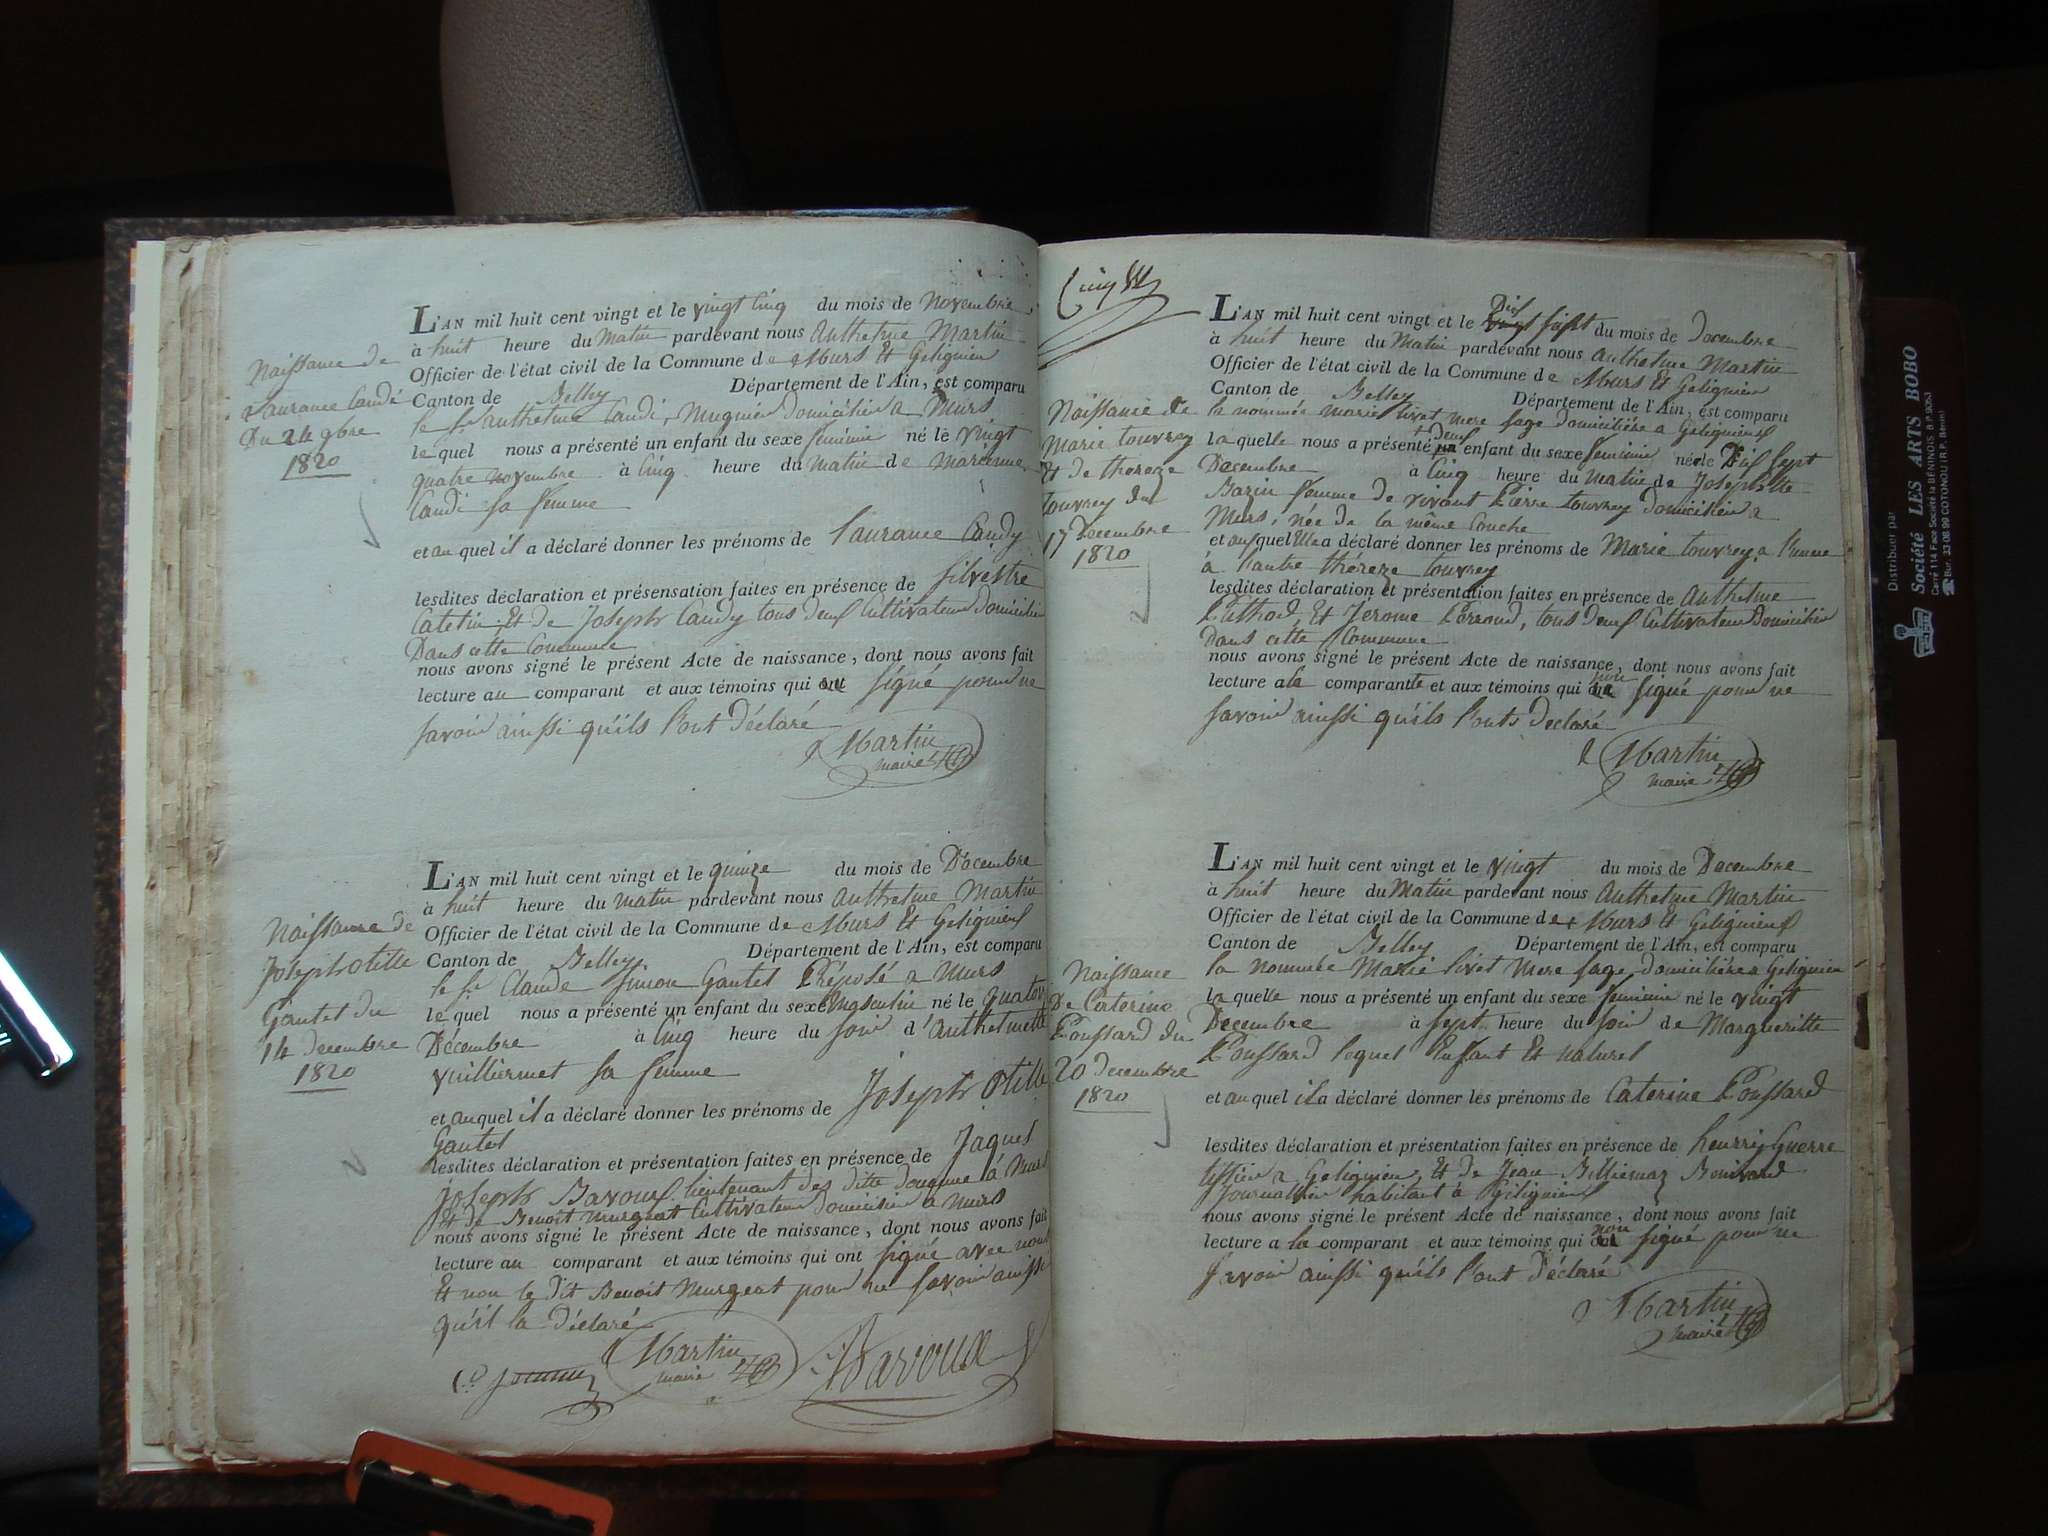 Naissance de
Laurance Candi
Du 24 9bre
1820
L'AN mil huit cent vingt et le vingt Cinq du mois de novembre
à huit heure du Matin pardevant nous Anthelme Martin
Officier de l'état civil de la Commune de Murs Et Gelignieu
Canton de Belley Département de l'Ain, est comparu
le Sr anthelme Candi, Mugnier Domicilier a Murs
lequel nous a présenté un enfant du sexe feminin né le vingt
quatre novembre à Cinq heure du Matin de
Candi Sa femme
et au quel il a déclaré donner les prénoms de Laurance Candy
lesdites déclaration et présensation faites en présence de Silvestre
Catetin Et de Joseph Candy tous deux Cultivateur Domicilier
Dans cette Commune
nous avons signé le présent Acte de naissance, dont nous avons fait
lecture au comparant et aux témoins qui signé pour ne
savoir ainssi qu'ils l'ont Déclaré
Martin
maire
Naissance de
Joseph otille
Gautet du
14 decembre
1820
L'AN mil huit cent vingt et le quinze du mois de Décembre
à huit heure du matin pardevant nous Anthelme Martin
Officier de l'état civil de la Commune de Murs Et Gelignieux
Canton de Belley Département de l'Ain, est comparu
le Sr Claude Simon Gautet Préposé a Murs
lequel nous a présenté un enfant du sexe masculin né le quator
Décembre à Cinq heure du soir d'Anthelmette
vuilliermet Sa femme
et auquel il a déclaré donner les prénoms de Joseph Otille
Gautet
lesdites déclaration et présentation faites en présence de Jaques
joseph Bavoux lieutenant des ditte douanne à Murs
Et de Benoit Murgeat Cultivateur Domicilier a Murs
nous avons signé le présent Acte de naissance, dont nous avons fait
lecture au comparant et aux témoins qui ont signé avec nous
Et non le Dit Benoit Murgeat pour ne Savoir ainssi
qu'il la Déclaré
Martin
maire
Bavoux
Naissance de
Marie touvrey
Et de thereze
touvrey du
17 Decembre
1820
L'AN mil huit cent vingt et le Dix
vingt sept du mois de Decembre
à huit heure du Matin pardevant nous Anthelme Martin
Officier de l'état civil de la Commune de Murs Et Gelignieu
Canton de Belley Département de l'Ain, est comparu
la nommée marie livet mere sage domicilière a Gelignieux
la quelle nous a présenté deux enfant du sexe feminin né le Dix Sept
Decembre à Cinq heure du matin de Josephette
Bazin femme de vivant Pierre touvrey Domicilier a
Murs, née de la même Couche
et aux quel Elle a déclaré donner les prénoms de Marie touvrey a l'unne
à l'autre théreze touvrey
lesdites déclaration et présentation faites en présence de Anthelme
Pithod, Et Jérome Perroud, tous Deux Cultivateur Domicilier
Dans cette Commune
nous avons signé le présent Acte de naissance, dont nous avons fait
lecture a la comparante et aux témoins qui non signé pour ne
savoir ainssi qu'ils l'onts Declaré
Martin
maire
Naissance
De Caterine
Poussard du
20 Decembre
1820
L'AN mil huit cent vingt et le vingt du mois de Decembre
à huit heure du Matin pardevant nous Anthelme Martin
Officier de l'état civil de la Commune de Murs Et Gelignieux
Canton de Belley Département de l'Ain, est comparu
la nommée Marie livet Mere sage domicilière a Gelignieu
la quelle nous a présenté un enfant du sexe feminin né le vingt
Decembre à sept heure du soir de Margueritte
Poussard lequel Enfant Et naturel
et au quel il a déclaré donner les prénoms de Caterine Poussard
lesdites déclaration et présentation faites en présence de henry Guerre
tissier a Gelignieu, Et de Jean Billiemaz
Journallier habitant à Gelignieux
nous avons signé le présent Acte de naissance, dont nous avons fait
lecture a la comparant et aux témoins qui non signé pour ne
Savoir ainssi qu'ils l'ont Déclaré
Martin
maire
Distribuer par
Société LES ARTS BOBO